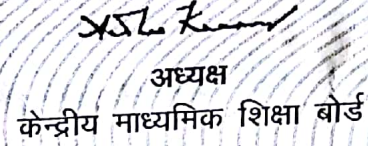 अध्यक्ष
केन्द्रीय माध्यमिक शिक्षा बोर्ड